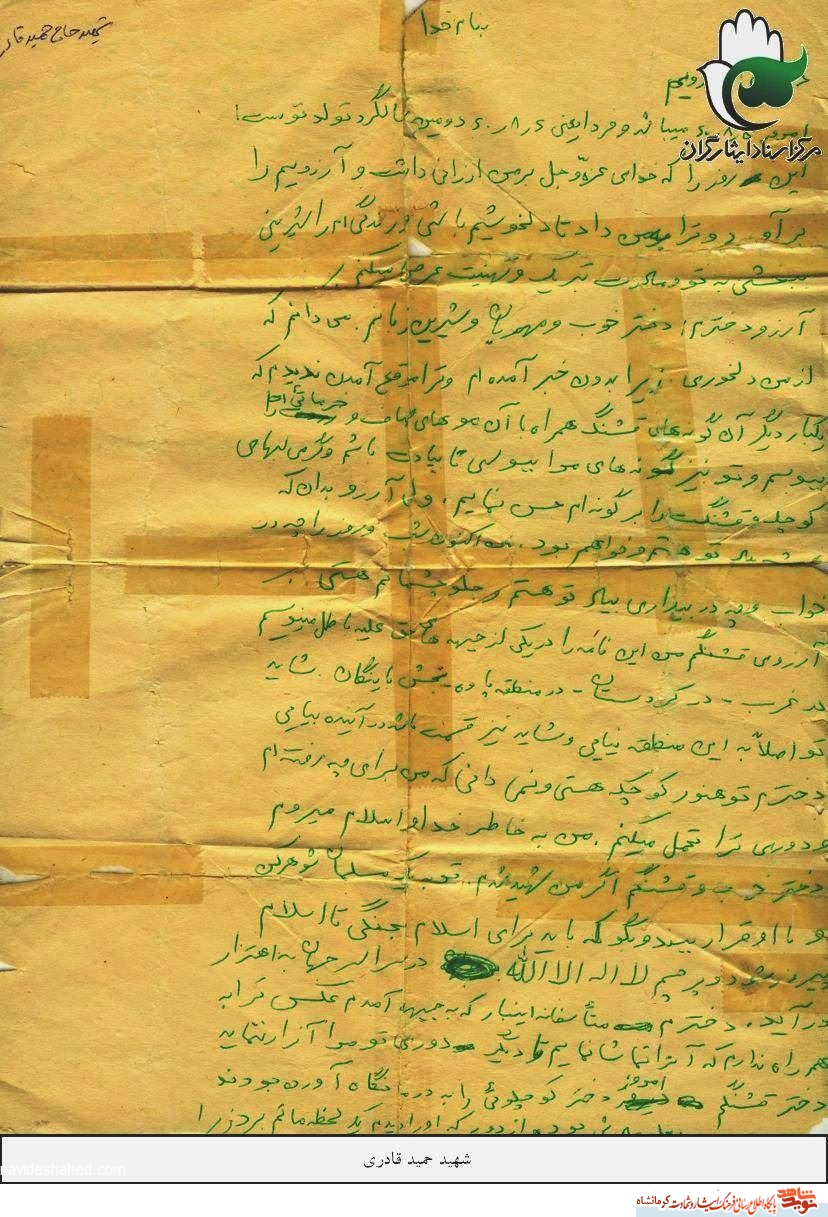 بنام خدا
شهید حاج حمید
مرکز اسناد ایثارگران
امروز میباشد و فردا یعنی ۶۰/۸/۶ دومین سالگرد تولد توست!
این روز را که خدای عزّوجل بر من ارزانی داشت و آرزویم را
برآورد و ترا بمن داد تا دلخوشیم باشی و زندگی ام را شیرینی
ببخشی به تو و مادرت تبریک و تهنیت عرض میکنم
آرزو دخترم، دختر خوب و مهربان و شیرین زبانم. می دانم که
از من دلخوری. زیرا بدون خبر آمده ام و ترا موقع آمدن ندیدم که
یکبار دیگر آن گونه های قشنگ همراه با آن موهای صاف و خرمائی را
ببوسم و تو نیز گونه های مرا ببوسی تا بیادت باشم و گرمی لبهای
کوچک و قشنگت را بر گونه ام حس نمایم، ولی آرزو بدان که
بیاد تو هستم و خواهم بود. هم اکنون شب و روز را چه در
خواب و چه در بیداری بیاد تو هستم و جلو چشمانم هستی
آرزوی قشنگم من این نامه را در یکی از جبهه های حق علیه باطل مینویسم
در غرب - در کردستان - در منطقه پاوه بخش باینگان. شاید
تو اصلاً به این منطقه نیایی و شاید نیز قسمت باشد در آینده بیایی
دخترم تو هنوز کوچک هستی و نمی دانی که من برای چه رفته ام
و دوری ترا تحمل میکنم. من به خاطر خدا و اسلام میروم
دختر خوب و قشنگم اگر من شهید شدم. تو با یک مسلمان شوهر کن
و با او قرار ببند و بگو که باید برای اسلام بجنگی تا اسلام
پیروز شود و پرچم لا اله الا الله در سراسر جهان به اهتزاز
درآید. دخترم متأسفانه اینبار که به جبهه آمدم عکس ترا به
همراه ندارم که آنرا تماشا نمایم تا دیگر دوری تو مرا آزار ننماید
دختر قشنگم امروز دختر کوچلوئی را به درمانگاه آورده بودند
بود. از دور که او را دیدم یک لحظه ماتم برد زیرا
شهید حمید قادری
navideshahed.com
نوید شاهد
پایگاه اطلاع رسانی فرهنگ ایثار و شهادت کرمانشاه